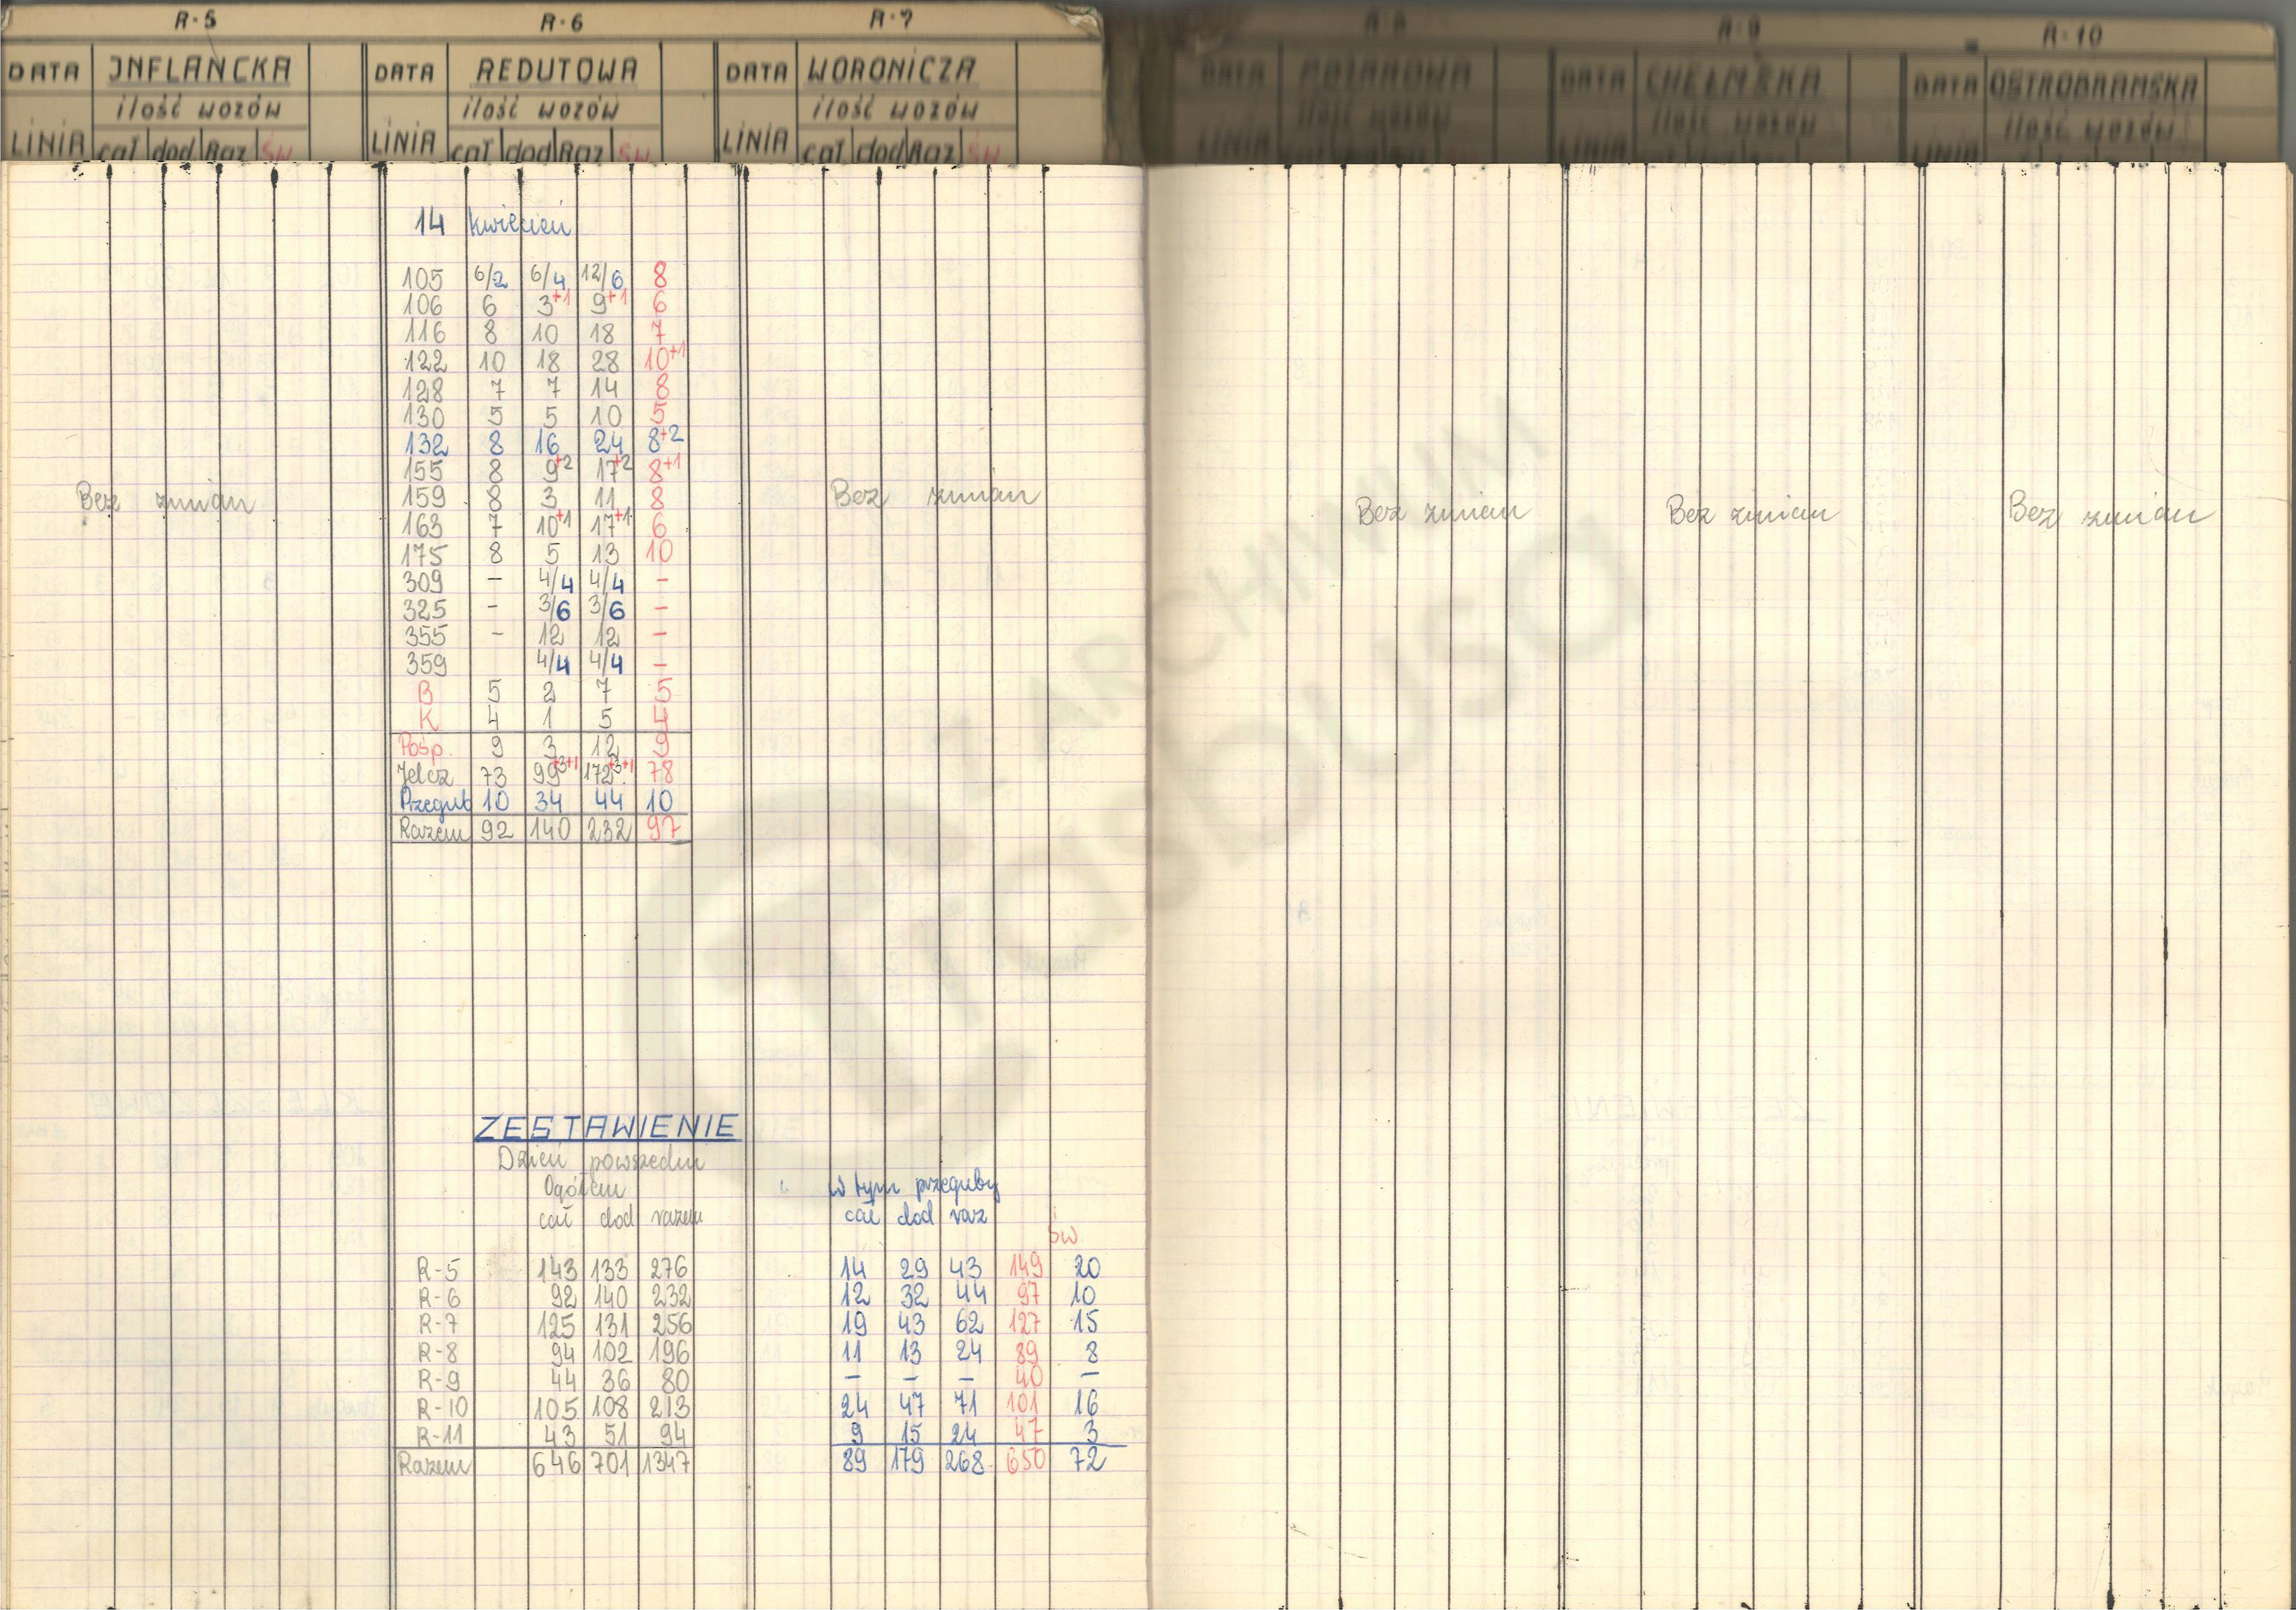 R-5 R-6 R-7 R-8 R-9 R-10
DATA INFLANCKA DATA REDUTOWA DATA WORONICZA DATA DATA CHEŁMSKA DATA OSTROBRAMSKA
ilość wozów ilość wozów ilość wozów ilość wozów ilość wozów ilość wozów
LINIA cał dod Raz ŚW LINIA cał dod Raz ŚW LINIA cał dod Raz ŚW LINIA LINIA LINIA
14 kwiecień
105 6/2 6/4 12/6 8
106 6 3+1 9+1 6
116 8 10 18 7
122 10 18 28 10+1
128 7 7 14 8
130 5 5 10 5
132 8 16 24 8+2
155 8 9+2 17+2 8+1
159 8 3 11 8
163 7 10+1 17+1 6
175 8 5 13 10
309 - 4/4 4/4 -
325 - 3/6 3/6 -
355 - 12 12 -
359 4/4 4/4 -
B 5 2 7 5
K 4 1 5 4
Pośp. 9 3 12 9
Jelcz 73 99+3+1 172+3+1 78
Przegub 10 34 44 10
Razem 92 140 232 97
Bez zmian
Bez zmian
Bez zmian
Bez zmian
Bez zmian
ZESTAWIENIE
Dzień powszedni
Ogółem w tym przeguby
cał dod razem cał dod raz
św.
R-5 143 133 276 14 29 43 149 20
R-6 92 140 232 12 32 44 97 10
R-7 125 131 256 19 43 62 127 15
R-8 94 102 196 11 13 24 89 8
R-9 44 36 80 - - - 40 -
R-10 105 108 213 24 47 71 101 16
R-11 43 51 94 9 15 24 47 3
Razem 646 701 1347 89 179 268 650 72
ARCHIWUM
trasbusa